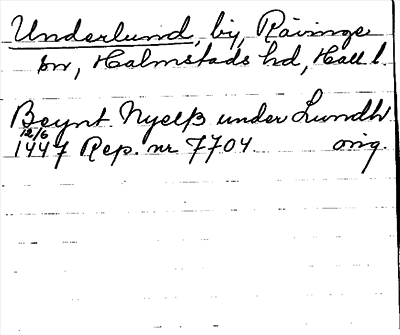 Underlund, by, Rävinge
sn, Halmstads hd, Hall l.
Beynt Nyelß under Lundh
12/6
1447 Rep. nr 7704. orig.